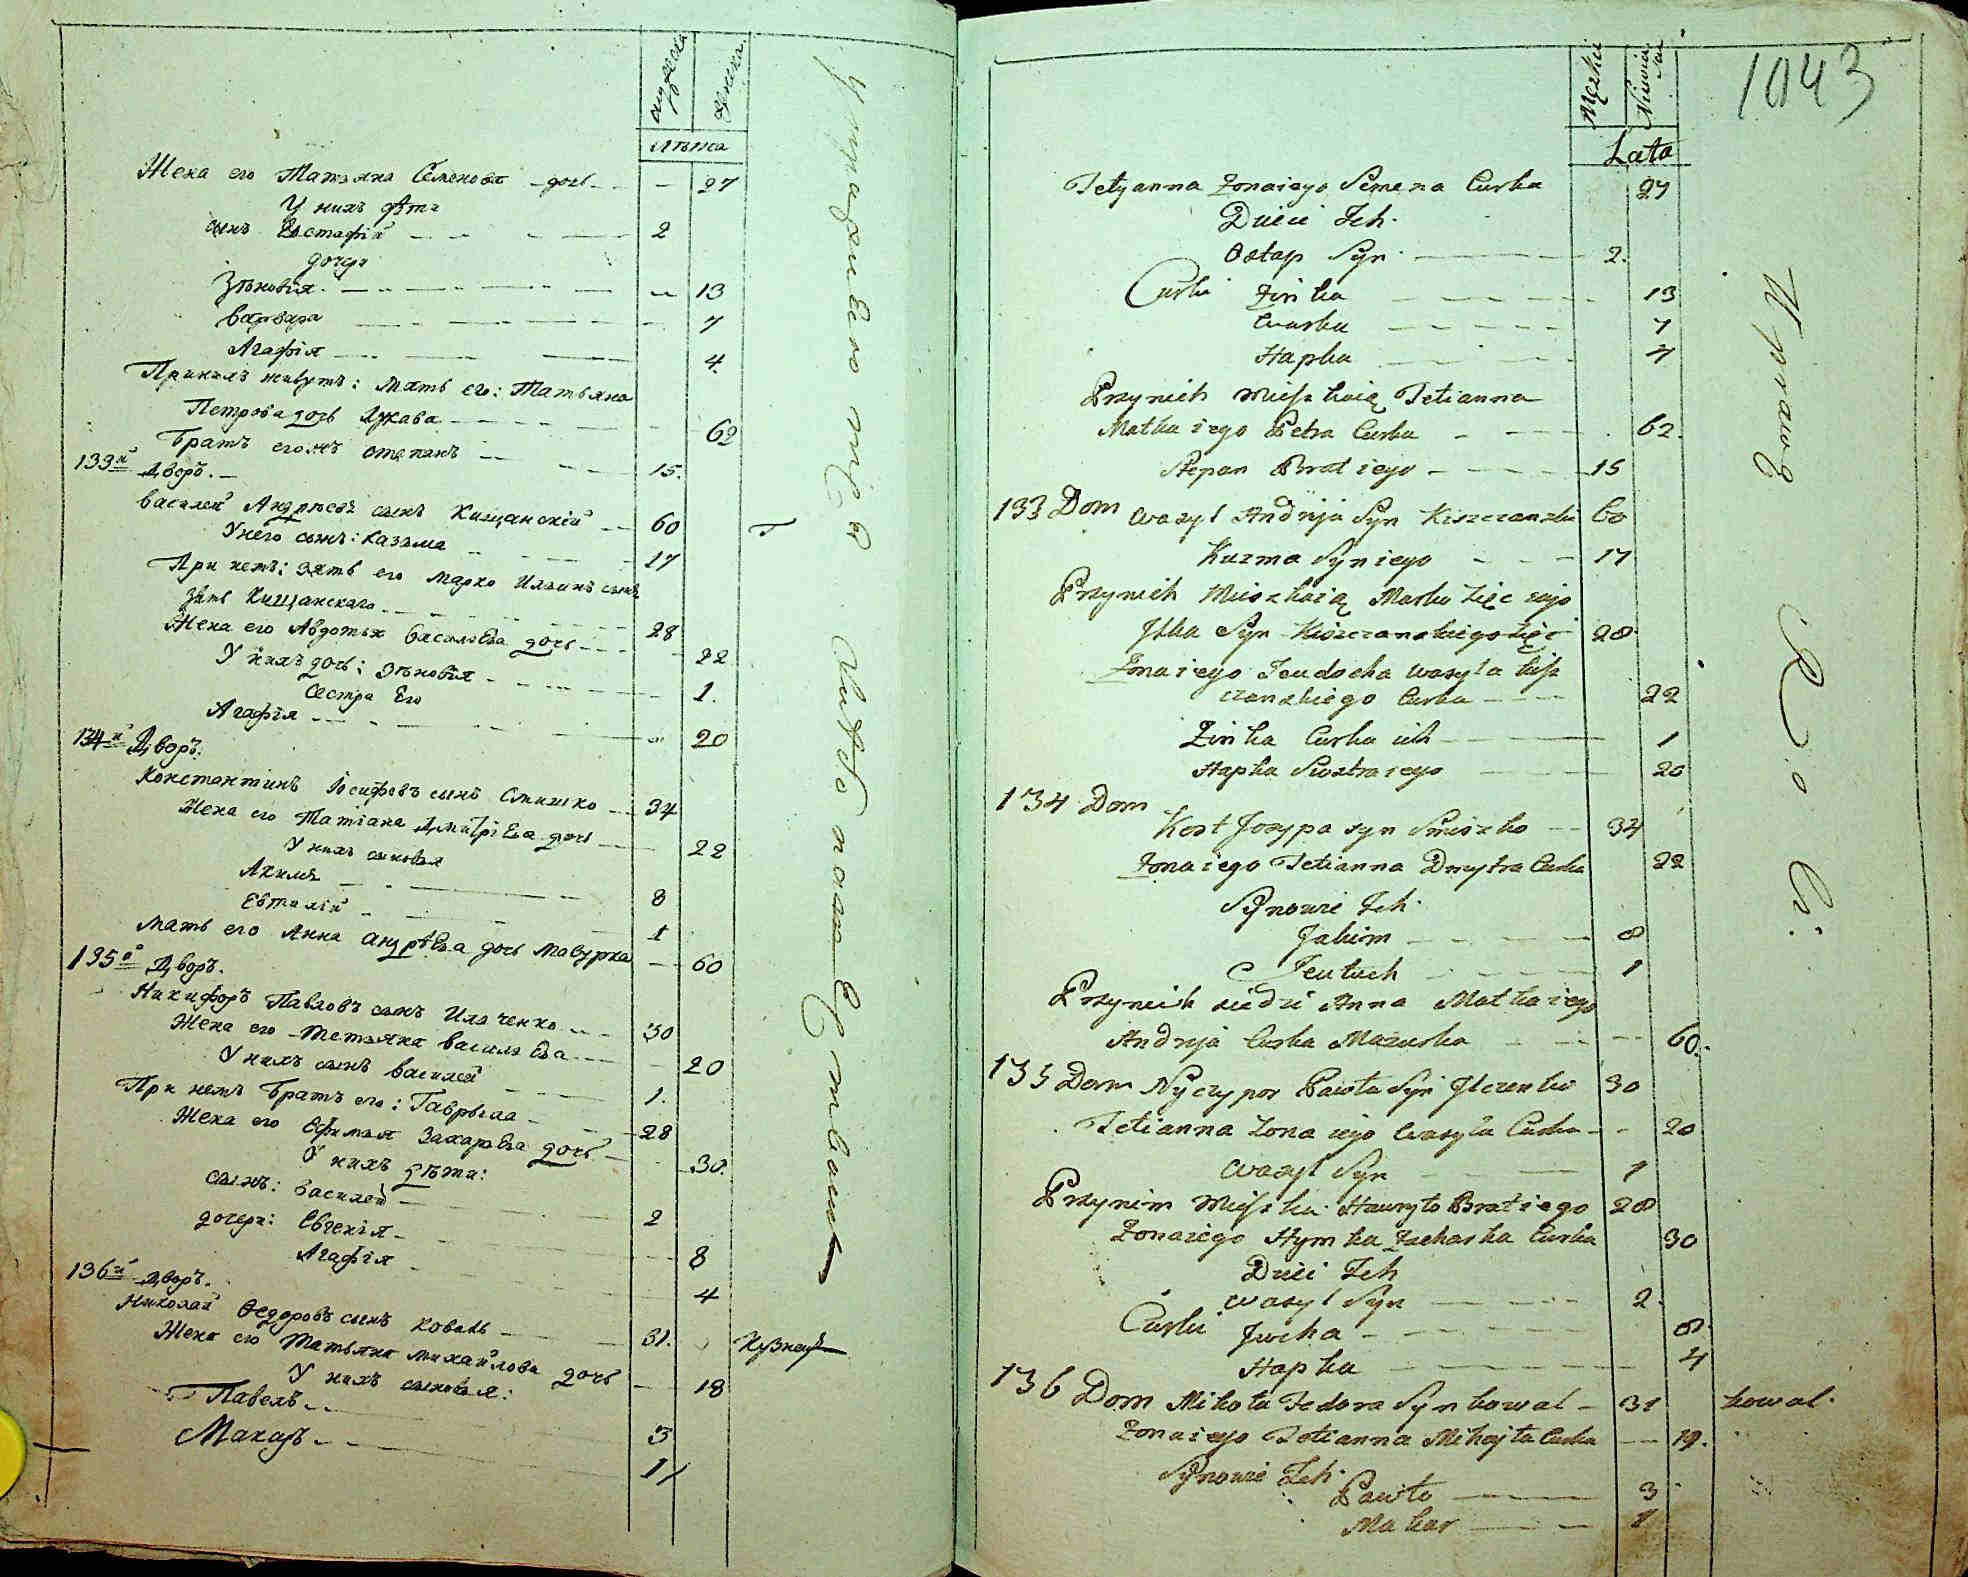 мужеска
женска
лѣта
Жена его Татьяна Семенова дочь 27
У нихъ дѣти
сынъ Евстафій 2
дочери
Зѣновія 13
Варвара 7
Агафія 4
При нихъ живутъ: мать его: Татьяна
Петрова дочь 62
Братъ егожъ Степанъ 15
133й Дворъ.
Василей Андреевъ сынъ Кищанскій 60
У него сынъ: Казьма 17
При немъ: зять его Марко Ильинъ сынъ
зять Кищанскаго 28
Жена его Авдотья Васильева дочь 22
У нихъ дочь: Зѣновія 1.
Сестра Его
Агафія 20
134й Дворъ.
Константинъ Іосифовъ сынъ Смишко 34
Жена его Татіана Дмитріева дочь 22
У нихъ сыновья
Акимъ 8
Евтихій 1
Мать его Анна Андрѣева дочь Мазурка 60
135й Дворъ.
Никифоръ Павловъ сынъ Ильченко 30
Жена его Татьяна Васильева 20
У нихъ сынъ Василей 1.
При немъ братъ его: Гаврыла 28
Жена его Ефимья Захарьева дочь 30.
У нихъ дѣти:
сынъ: Василей 2
дочери: Евгенія 8
Агафія 4
136й Дворъ.
Николай Федоровъ сынъ Коваль 31.
Кузнецъ
Жена его Татьяна Михайлова дочь 18
У нихъ сыновья:
Павелъ 3
Макаръ 1
1043
Męzka
Lata
Tetyanna Zona iego Semena Curka 27
Dzieci Ich.
Ostap Syn 2.
Curki Zinka 13
Warka 7
Hapka 4
Przy nich Mieszkaią Tetianna
Matka iego Petra Curka 62.
Stepan Brat iego 15
133 Dom Wasyl Andrija Syn Kiszczanski 60
Kuzma Syn iego 17
Przy nich Mieszkaią Marko Zięc iego
Ilka Syn Kiszczanskiego Zięc 28
Zona iego Jeudocha Wasyla Kisz
czanskiego Curka 22
Zinka Curka ich 1
Hapka Siostra iego 20
134 Dom
Kost Jozypa syn Smiszko 34
Zona iego Tetianna Dmytra Curka 22
Synowie Ich.
Jakim 8
Jeutuch 1
Przy nich siedzi Anna Matka iego
Andrija Curka Mazurka 60.
135 Dom Nyczypor Pawła Syn Ilczenko 30
Tetianna Zona iego Wasyla Curka 20
Wasyl Syn 1
Przy nim Mieszka Hawryło Brat iego 28
Zona iego Hymka Zacharka Curka 30
Dzieci Ich
Wasyl Syn 2.
Curki Jwcha 8.
Hapka 4
136 Dom Mikoła Fedora Syn kowal 31
kowal.
Zona iego Tetianna Mihajła Curka 19.
Synowie Ich.
Pawło 3
Makar 1